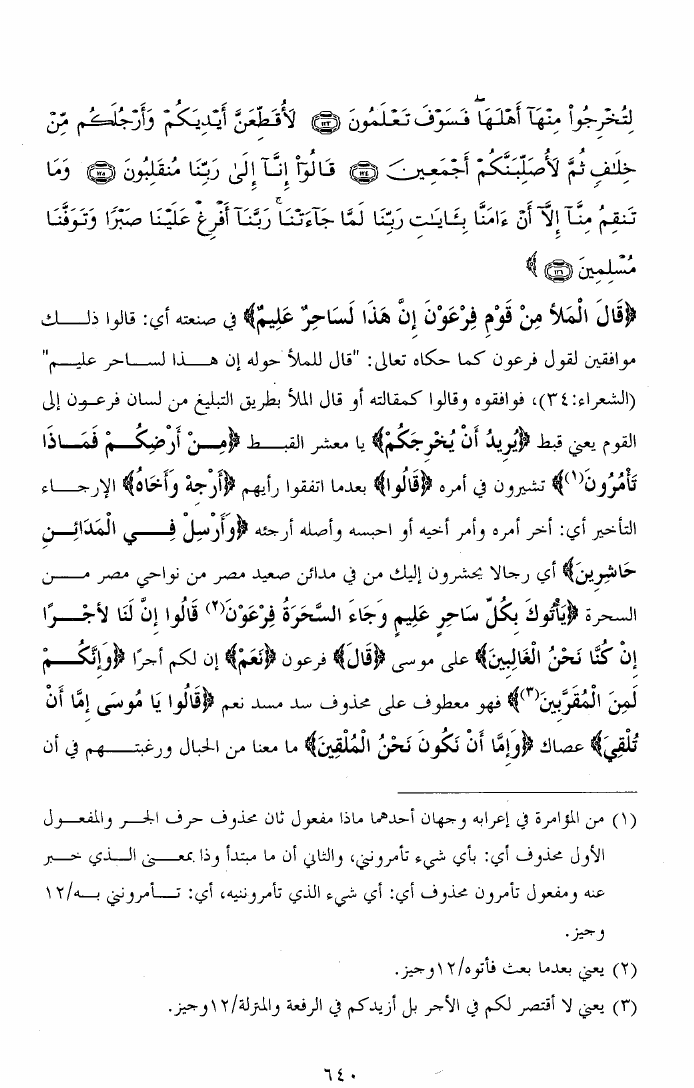 لِتُخْرِجُوا۟ مِنْهَآ أَهْلَهَا ۖ فَسَوْفَ تَعْلَمُونَ ﴿١٢٣﴾ لَأُقَطِّعَنَّ أَيْدِيَكُمْ وَأَرْجُلَكُم مِّنْ
خِلَـٰفٍ ثُمَّ لَأُصَلِّبَنَّكُمْ أَجْمَعِينَ ﴿١٢٤﴾ قَالُوٓا۟ إِنَّآ إِلَىٰ رَبِّنَا مُنقَلِبُونَ ﴿١٢٥﴾ وَمَا
تَنقِمُ مِنَّآ إِلَّآ أَنْ ءَامَنَّا بِـَٔايَـٰتِ رَبِّنَا لَمَّا جَآءَتْنَا ۚ رَبَّنَآ أَفْرِغْ عَلَيْنَا صَبْرًا وَتَوَفَّنَا
مُسْلِمِينَ ﴿١٢٦﴾ ﴾
﴿قَالَ الْمَلأُ مِنْ قَوْمِ فِرْعَوْنَ إِنَّ هَذَا لَسَاحِرٌ عَلِيمٌ﴾ في صنعته أي: قالوا ذلك
موافقين لقول فرعون كما حكاه تعالى: "قال للملأ حوله إن هذا لساحر عليم"
(الشعراء:٣٤)، فوافقوه وقالوا كمقالته أو قال الملأ بطريق التبليغ من لسان فرعون إلى
القوم يعني قبط ﴿يُرِيدُ أَنْ يُخْرِجَكُمْ﴾ يا معشر القبط ﴿مِنْ أَرْضِكُمْ فَمَاذَا
تَأْمُرُونَ(١)﴾ تشيرون في أمره ﴿قَالُوا﴾ بعدما اتفقوا رأيهم ﴿أَرْجِهْ وَأَخَاهُ﴾ الإرجاء
التأخير أي: أخر أمره وأمر أخيه أو احبسه وأصله أرجئه ﴿وَأَرْسِلْ فِي الْمَدَائِنِ
حَاشِرِينَ﴾ أي رجالا يحشرون إليك من في مدائن صعيد مصر من نواحي مصر من
السحرة ﴿يَأْتُوكَ بِكُلِّ سَاحِرٍ عَلِيمٍ وَجَاءَ السَّحَرَةُ فِرْعَوْنَ(٢) قَالُوا إِنَّ لَنَا لأَجْرًا
إِنْ كُنَّا نَحْنُ الْغَالِبِينَ﴾ على موسى ﴿قَالَ﴾ فرعون ﴿نَعَمْ﴾ إن لكم أجرًا ﴿وَإِنَّكُمْ
لَمِنَ الْمُقَرَّبِينَ(٣)﴾ فهو معطوف على محذوف سد مسد نعم ﴿قَالُوا يَا مُوسَى إِمَّا أَنْ
تُلْقِيَ﴾ عصاك ﴿وَإِمَّا أَنْ نَكُونَ نَحْنُ الْمُلْقِينَ﴾ ما معنا من الحبال ورغبتهم في أن
(١) من المؤامرة في إعرابه وجهان أحدهما ماذا مفعول ثان محذوف حرف الجر والمفعول
الأول محذوف أي: بأي شيء تأمرونني، والثاني أن ما مبتدأ وذا بمعنى الذي خبر
عنه ومفعول تأمرون محذوف أي: أي شيء الذي تأمروننيه، أي: تأمرونني به/١٢
وجيز.
(٢) يعني بعدما بعث فأتوه/١٢وجيز.
(٣) يعني لا أقتصر لكم في الأجر بل أزيدكم في الرفعة والمنزلة/١٢وجيز.
٦٤٠